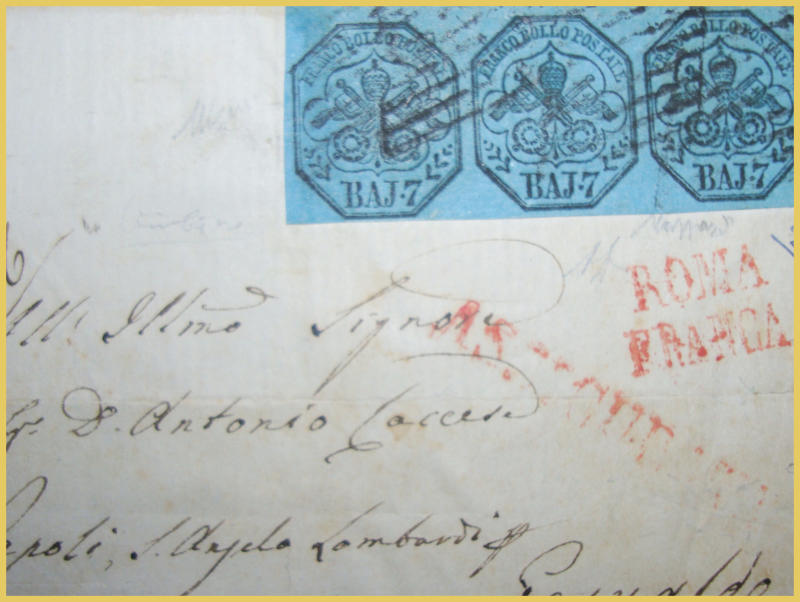 FRANCO BOLLO POSTALE
BAJ.7
FRANCO BOLLO POSTALE
BAJ.7
FRANCO BOLLO POSTALE
BAJ.7
ROMA
FRANCA
All' Illmo Signore
D. Antonio Caccese
Napoli, S. Angelo Lombardi
Gesualdo